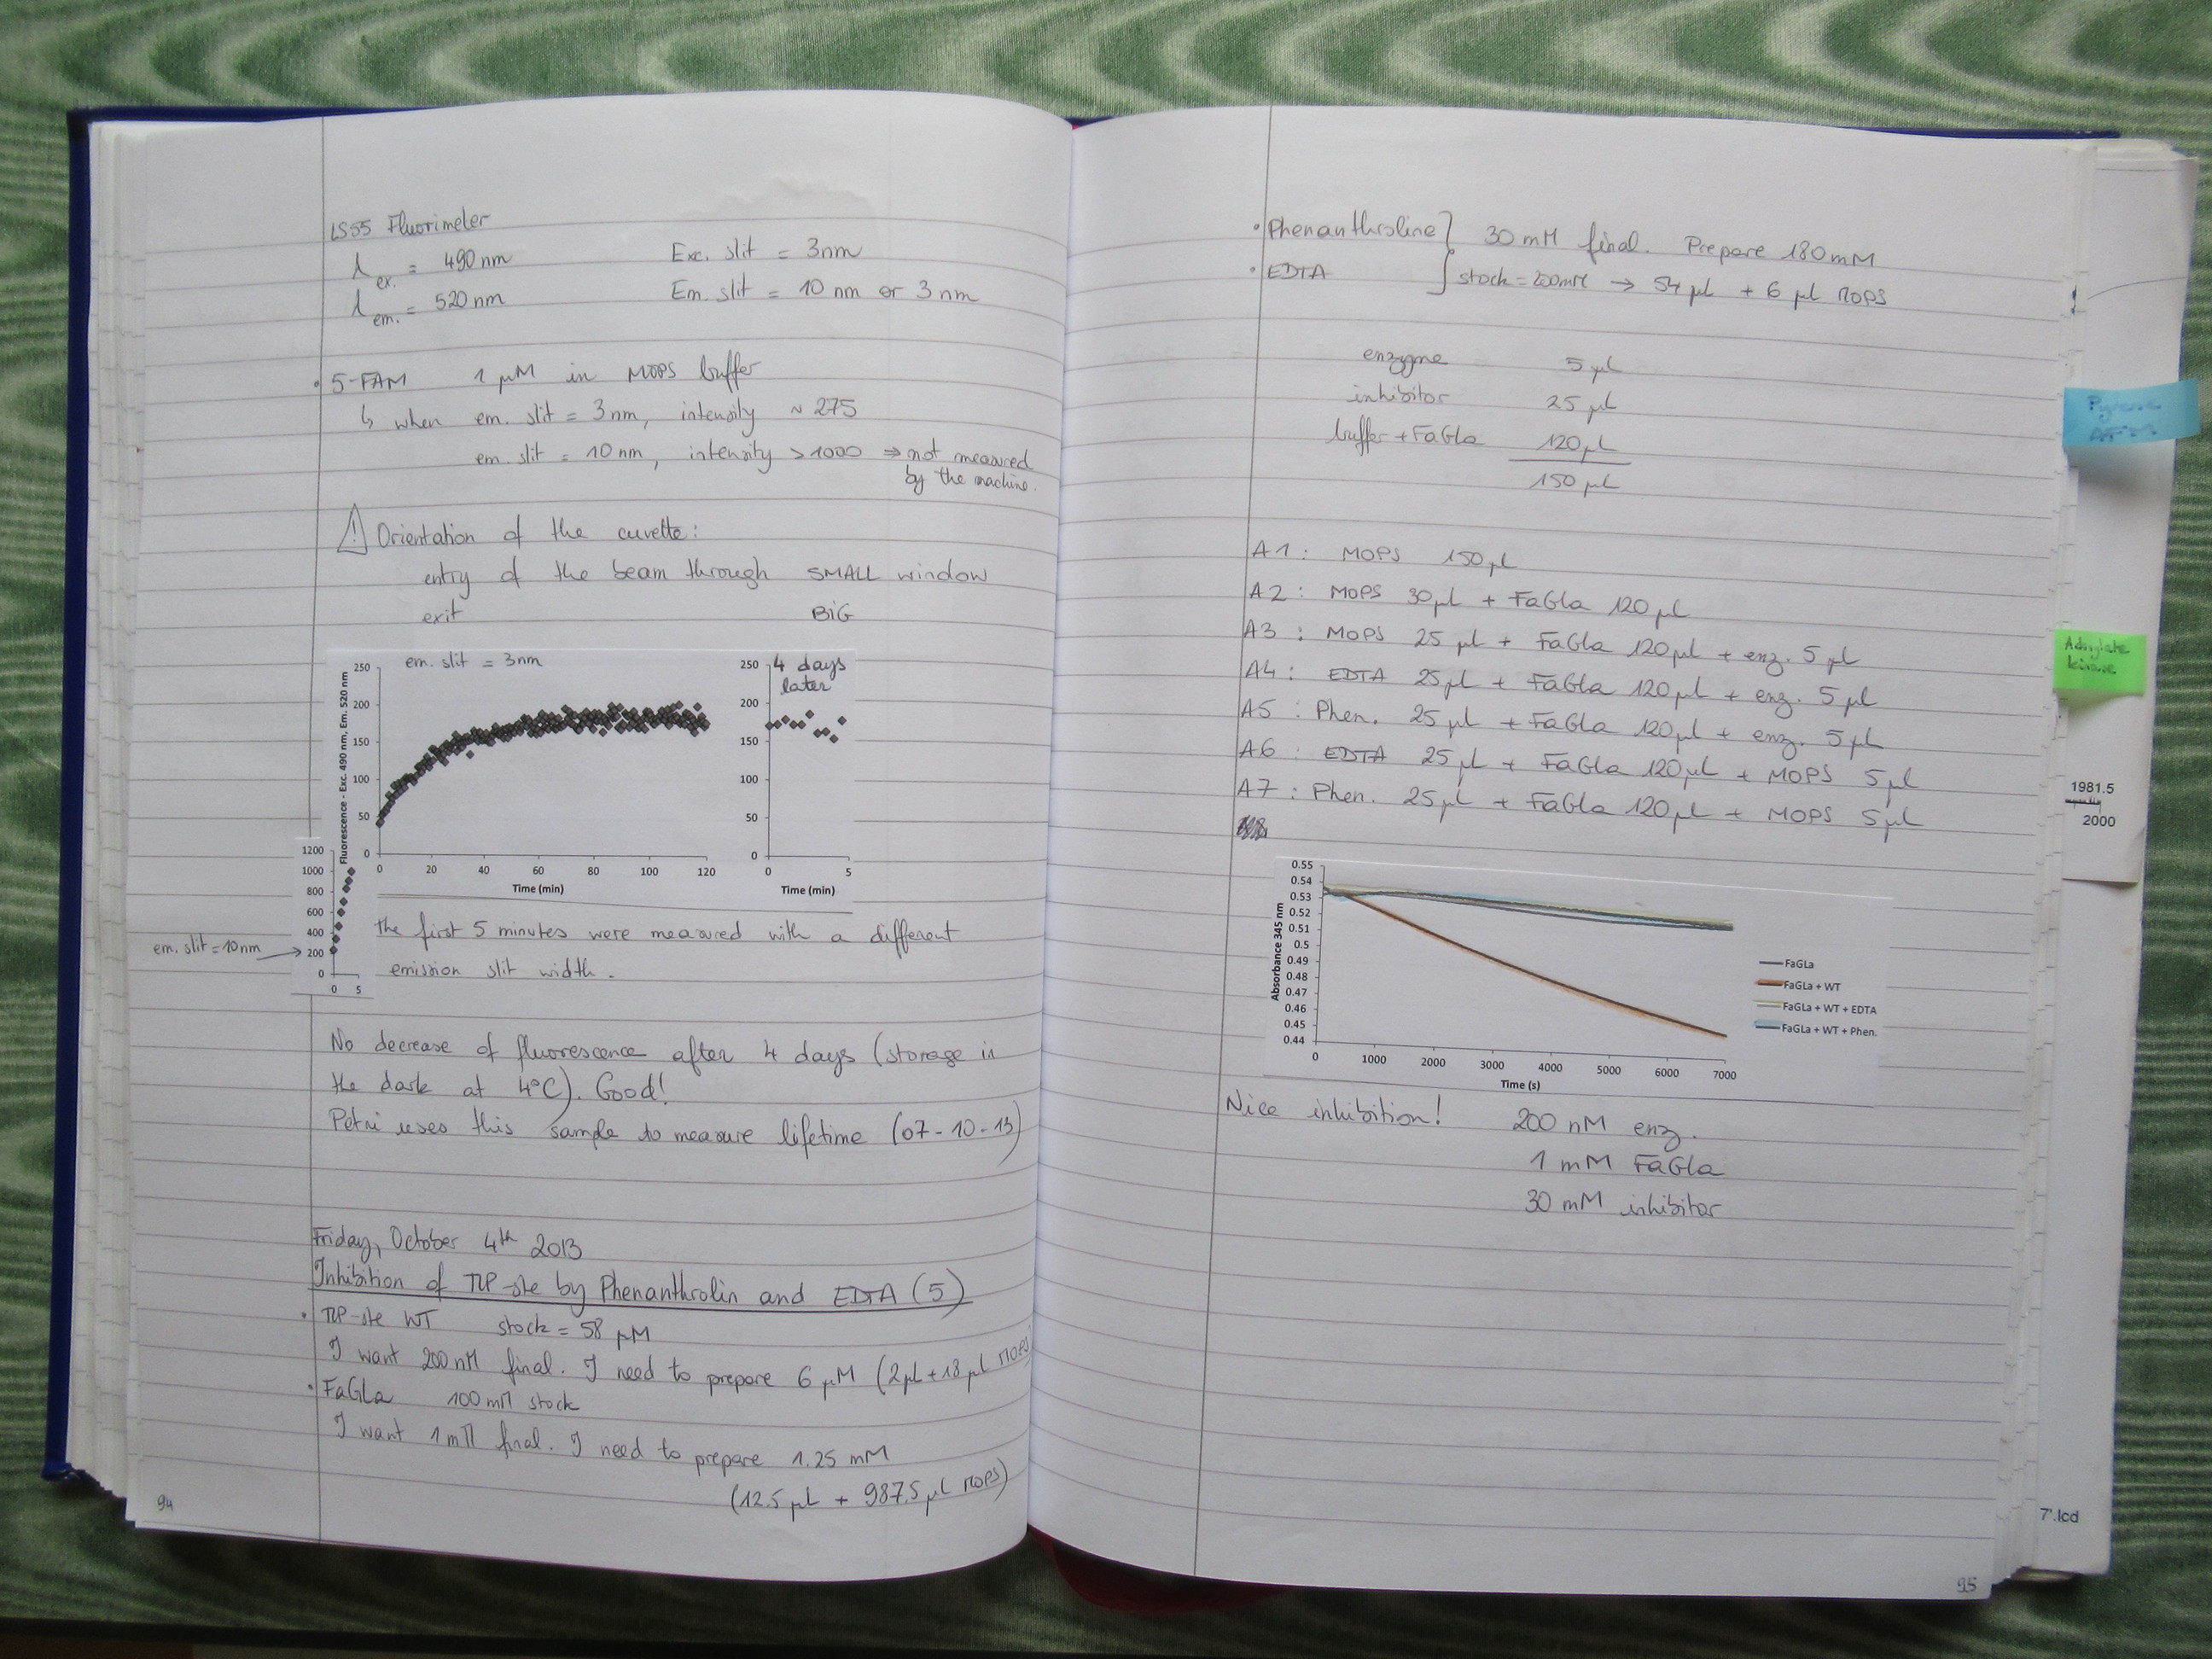 LS55 Fluorimeter
λex. = 490 nm Exc. slit = 3nm
λem. = 520 nm Em. slit = 10 nm or 3 nm
• 5-FAM 1 µM in MOPS buffer
↳ when em. slit = 3nm, intensity ~ 275
em. slit = 10nm, intensity > 1000 ⇒ not measured
by the machine.
⚠ Orientation of the cuvette:
entry of the beam through SMALL window
exit BiG
em. slit = 3nm
4 days
later
Fluorescence - Exc. 490 nm, Em. 520 nm
250
200
150
100
50
0
0 20 40 60 80 100 120
Time (min)
250
200
150
100
50
0
0 5
Time (min)
1200
1000
800
600
400
200
0
0 5
em. slit = 10nm →
the first 5 minutes were measured with a different
emission slit width.
No decrease of fluorescence after 4 days (storage in
the dark at 4°C). Good!
Petri uses this sample to measure lifetime (07-10-13)
Friday, October 4th 2013
Inhibition of TLP-ste by Phenanthrolin and EDTA (5)
• TLP-ste WT stock = 58 µM
I want 200 nM final. I need to prepare 6 µM (2µL+18µL MOPS
• FaGLa 100 mM stock
I want 1 mM final. I need to prepare 1.25 mM
(12.5 µL + 987.5 µL MOPS)
94
• Phenanthroline } 30 mM final. Prepare 180 mM
• EDTA } stock = 200mM → 54 µL + 6 µL MOPS
enzyme 5 µL
inhibitor 25 µL
buffer + FaGLa 120 µL
150 µL
A1 : MOPS 150 µL
A2 : MOPS 30 µL + FaGLa 120 µL
A3 : MOPS 25 µL + FaGLa 120 µL + enz. 5 µL
A4 : EDTA 25 µL + FaGLa 120 µL + enz. 5 µL
A5 : Phen. 25 µL + FaGLa 120 µL + enz. 5 µL
A6 : EDTA 25 µL + FaGLa 120 µL + MOPS 5 µL
A7 : Phen. 25 µL + FaGLa 120 µL + MOPS 5 µL
Absorbance 345 nm
0.55
0.54
0.53
0.52
0.51
0.5
0.49
0.48
0.47
0.46
0.45
0.44
0 1000 2000 3000 4000 5000 6000 7000
Time (s)
FaGLa
FaGLa + WT
FaGLa + WT + EDTA
FaGLa + WT + Phen.
Nice inhibition! 200 nM enz.
1 mM FaGLa
30 mM inhibitor
95
Pyrene
AFM
Adenylate
kinase
1981.5
2000
7'.lcd